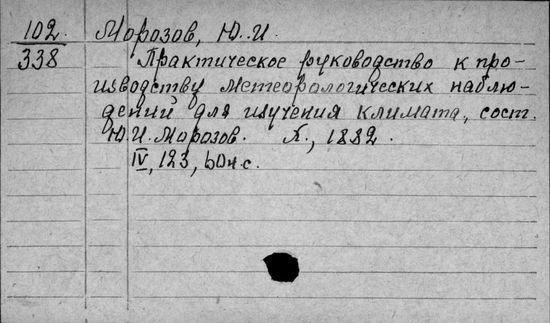 102. Морозов, Ю. И.
338 Практическое руководство к про-
изводству метеорологических наблю-
дений для изучения климата, сост.
Ю. И. Морозов. Х., 1882.
IV, 123, 60 н. с.